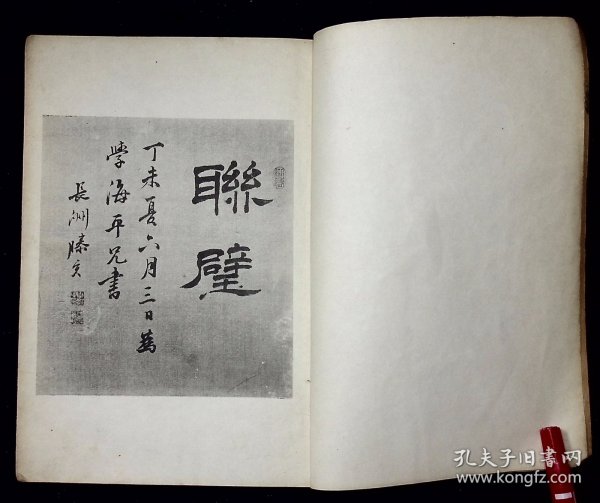 聯璧
丁未夏六月三日為
學海平兄書
長洲滕亥
孔夫子旧书网
www.kongfz.com